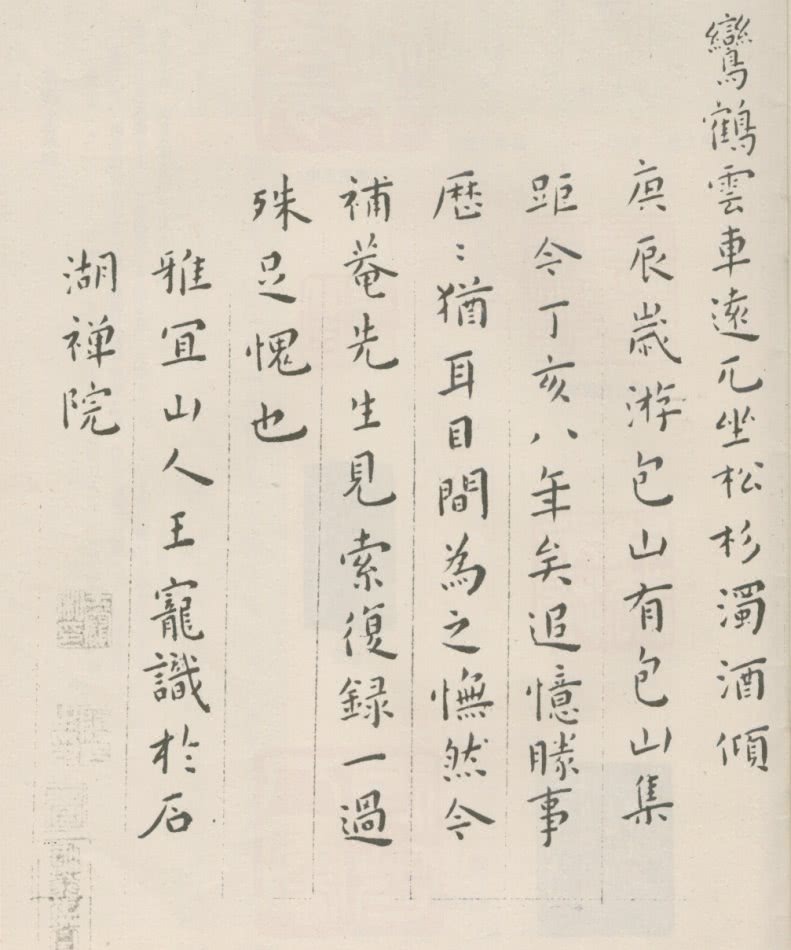 鸞鶴雲車遠兀坐松杉濁酒傾
庚辰歲游包山有包山集
距今丁亥八年矣追憶勝事
歷〻猶耳目間為之憮然今
補菴先生見索復錄一過
殊足愧也
雅宜山人王寵識於石
湖禅院